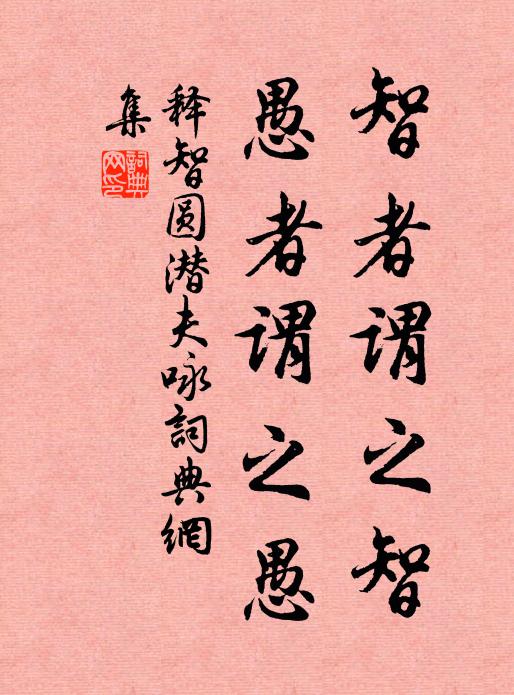 智者谓之智
愚者谓之愚
释智圆潜夫咏詞典網
集
詞典
网印